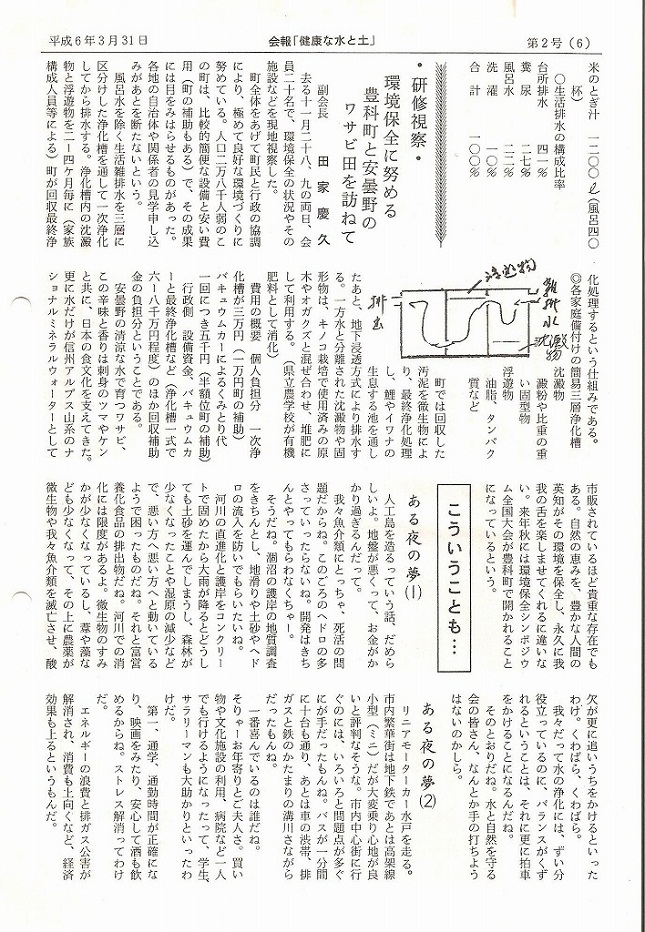 平成6年3月31日
会報「健康な水と土」
第2号(6)
米のとぎ汁 一二〇〇ℓ(風呂四〇
杯)
〇生活排水の構成比率
台所排水 四一%
糞尿 二七%
風呂水 二二%
洗濯 一〇%
合計 一〇〇%
・研修視察・
環境保全に努める
豊科町と安曇野の
ワサビ田を訪ねて
副会長 田家慶久
去る十一月二十八、九の両日、会
員二十名で、環境保全の状況やその
施設などを現地視察した。
町全体をあげて町民と行政の協調
により、極めて良好な環境づくりに
努めている。人口二万八千人弱のこ
の町は、比較的簡便な設備と安い費
用(町の補助もある)で、その成果
には目をみはらせるものがあった。
各地の自治体や関係者の見学申し込
みがあとを断たないという。
風呂水を除く生活雑排水を三層に
区分けした浄化槽を通して一次浄化
してから排水する。浄化槽内の沈澱
物と浮遊物を二ー四ケ月毎に(家族
構成人員等による)町が回収最終浄
化処理するという仕組みである。
◎各家庭備付けの簡易三層浄化槽
雑排水
浮遊物
沈澱物
排出
沈澱物
澱粉や比重の重
い固型物
浮遊物
油脂、タンパク
質など
町では回収した
汚泥を微生物によ
り、最終浄化処理
し、鯉やイワナの
生息する池を通し
たあと、地下浸透方式により排水す
る。一方水と分離された沈澱物や固
形物は、キノコ栽培で使用済みの原
木やオガクズと混ぜ合わせ、堆肥に
して利用する。(県立農学校が有機
肥料として消化)
費用の概要 個人負担分 一次浄
化槽が三万円(一万円町の補助)
バキュウムカーによるくみとり代
一回につき五千円(半額位町の補助)
行政側 設備資金、バキュウムカ
ーと最終浄化槽など(浄化槽一式で
六ー八千万円程度)のほか回収補助
金の負担分ということである。
安曇野の清涼な水で育つワサビ、
この辛味と香りは刺身のツマやケン
と共に、日本の食文化を支えてきた。
更に水だけが信州アルプス山系のナ
ショナルミネラルウォーターとして
市販されているほど貴重な存在でも
ある。自然の恵みを、豊かな人間の
英知がその環境を保全し、永久に我
我の舌を楽しませてくれるに違いな
い。来年秋には環境保全シンポジウ
ム全国大会が豊科町で開かれること
になっているという。
こういうことも…
ある夜の夢(1)
人工島を造るっていう話、だめら
しいよ。地盤が悪くって、お金がか
かり過ぎるんだって。
我々魚介類にとっちゃ、死活の問
題だからね。このごろのヘドロの多
さっていったらないね。開発はきち
んとやってもらわなくちゃー。
そうだね。潮沼の護岸の地質調査
をきちんとし、地滑りや土砂やヘド
ロの流入を防いでもらいたいね。
河川の直進化と護岸をコンクリー
トで固めたから大雨が降るとどうし
ても土砂を運んでしまうし、森林が
少なくなったことや湿原の減少など
で、悪い方へ悪い方へと動いている
ようで困ったものだね。それと富営
養化食品の排出物だね。河川での消
化には限度があるよ。微生物のすみ
かが少なくなっているし、葦や藻な
ども少なくなって、その上に農薬が
微生物や我々魚介類を滅亡させ、酸
欠が更に追いうちをかけるといった
わけ。くわばら、くわばら。
我々だって水の浄化には、ずい分
役立っているのに、バランスがくず
れるということは、それに更に拍車
をかけることになるんだね。
そのとおりだね。水と自然を守る
会の皆さん、なんとか手の打ちよう
はないのかしら。
ある夜の夢(2)
リニアモーターカー水戸を走る。
市内繁華街は地下鉄であとは高架線
小型(ミニ)だが大変乗り心地が良
いと評判なそうな。市内中心街に行
ぐのには、いろいろと問題点が多ぐ
にが手だったもんね。バスが一分間
に十台も通り、あとは車の渋滞、排
ガスと鉄のかたまりの溝川さながら
だったもんね。
一番喜んでいるのは誰だね。
そりゃーお年寄りとご夫人さ。買い
物や文化施設の利用、病院など一人
でも行けるようになったって、学生、
サラリーマンも大助かりといったわ
けだ。
第一、通学、通勤時間が正確にな
り、映画をみたり、安心して酒も飲
めるからね。ストレス解消ってわけ
だ。
エネルギーの浪費と排ガス公害が
解消され、消費も上向くなど、経済
効果も上るというもんだ。